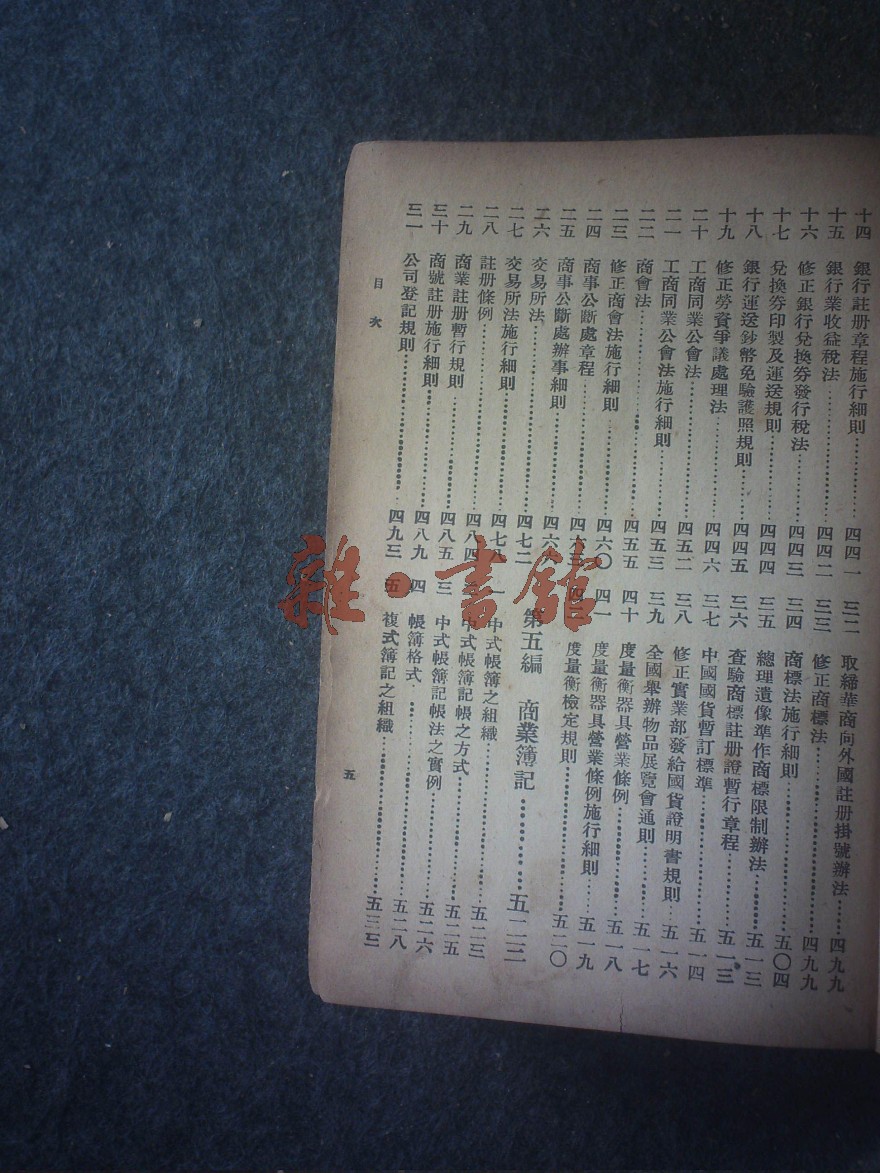 十四 銀行註册章程施行細則 四四一
十五 銀行業收益稅法 四四二
十六 修正銀行兌換劵發行稅法 四四三
十七 兌換劵印製及運送規則 四四四
十八 銀行運送鈔幣免驗護照規則 四四五
十九 修正勞資爭議處理法 四四六
二十 工商同業公會法 四五二
二一 工商同業公會法施行細則 四五三
二二 商會法 四五五
二三 修正商會法施行細則 四六〇
二四 商事公斷處章程 四六三
二五 商事公斷處辦事細則 四六六
二六 交易所法 四七二
二七 交易所法施行細則 四七八
二八 註册條例 四八四
二九 商業註册暫行規則 四八五
三十 商號註册施行細則 四八九
三一 公司登記規則 四九三
三二 取締華商向外國註册掛號辦法 四九九
三三 修正商標法 四九九
三四 商標法施行細則 五〇四
三五 總理遺像準作商標限制辦法 五一三
三六 查驗商標註册證暫行章程 五一三
三七 中國國貨暫訂標準 五一四
三八 修正實業部發給國貨證明書規則 五一六
三九 全國舉辦物品展覽會通則 五一七
四十 度量衡器具營業條例 五一八
四一 度量衡器具營業條例施行細則 五一九
四二 度量衡檢定規則 五二〇
第五編 商業簿記 五二三
一 中式帳簿之組織 五二三
二 中式帳簿記帳之方式 五二五
三 中式帳簿記帳法之實例 五二六
四 帳簿格式 五二八
五 複式簿記之組織 五三三
目次
五
雜·書館